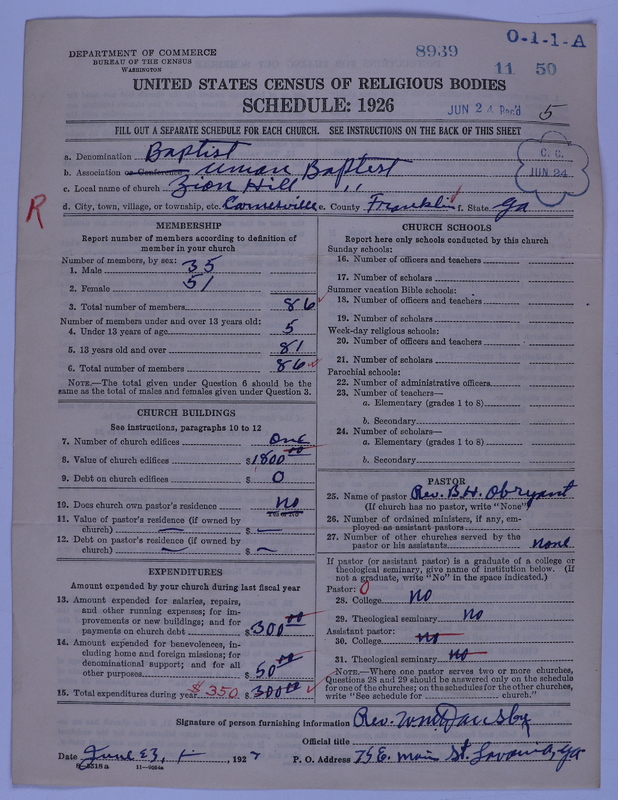 O-1-1-A
8939
11 50
DEPARTMENT OF COMMERCE
BUREAU OF THE CENSUS
WASHINGTON
UNITED STATES CENSUS OF RELIGIOUS BODIES
SCHEDULE: 1926
JUN 24 Rec'd 5
FILL OUT A SEPARATE SCHEDULE FOR EACH CHURCH. SEE INSTRUCTIONS ON THE BACK OF THIS SHEET
C. C.
JUN 24
a. Denomination Baptist
b. Association or Conference Union Baptist
c. Local name of church Zion Hill "
d. City, town, village, or township, etc. Carnesville e. County Franklin f. State Ga
R
MEMBERSHIP
Report number of members according to definition of
member in your church
Number of members, by sex:
1. Male 35
2. Female 51
3. Total number of members 86
Number of members under and over 13 years old:
4. Under 13 years of age 5
5. 13 years old and over 81
6. Total number of members 86
NOTE.—The total given under Question 6 should be the
same as the total of males and females given under Question 3.
CHURCH BUILDINGS
See instructions, paragraphs 10 to 12
7. Number of church edifices One
8. Value of church edifices $1800.00
9. Debt on church edifices $ 0
10. Does church own pastor's residence No
Yes or No
11. Value of pastor's residence (if owned by
church) — $ —
12. Debt on pastor's residence (if owned by
church) — $ —
EXPENDITURES
Amount expended by your church during last fiscal year
13. Amount expended for salaries, repairs,
and other running expenses; for im-
provements or new buildings; and for
payments on church debt $300.00
14. Amount expended for benevolences, in-
cluding home and foreign missions; for
denominational support; and for all
other purposes $50.00
15. Total expenditures during year $350 $300.00
CHURCH SCHOOLS
Report here only schools conducted by this church
Sunday schools:
16. Number of officers and teachers
17. Number of scholars
Summer vacation Bible schools:
18. Number of officers and teachers
19. Number of scholars
Week-day religious schools:
20. Number of officers and teachers
21. Number of scholars
Parochial schools:
22. Number of administrative officers
23. Number of teachers—
a. Elementary (grades 1 to 8)
b. Secondary
24. Number of scholars—
a. Elementary (grades 1 to 8)
b. Secondary
PASTOR
25. Name of pastor Rev. B.H. Obryant
(If church has no pastor, write "None")
26. Number of ordained ministers, if any, em-
ployed as assistant pastors
27. Number of other churches served by the
pastor or his assistants none
If pastor (or assistant pastor) is a graduate of a college or
theological seminary, give name of institution below. (If
not a graduate, write "No" in the space indicated.)
Pastor: 0
28. College No
29. Theological seminary No
Assistant pastor:
30. College no
31. Theological seminary no
NOTE.—Where one pastor serves two or more churches,
Questions 28 and 29 should be answered only on the schedule
for one of the churches; on the schedules for the other churches,
write "See schedule for church."
Signature of person furnishing information Rev. Wm Dansby
Official title
Date June 23, 1927 P. O. Address 75 E. main St. Lavonia, Ga
8-5518a 11—9054a